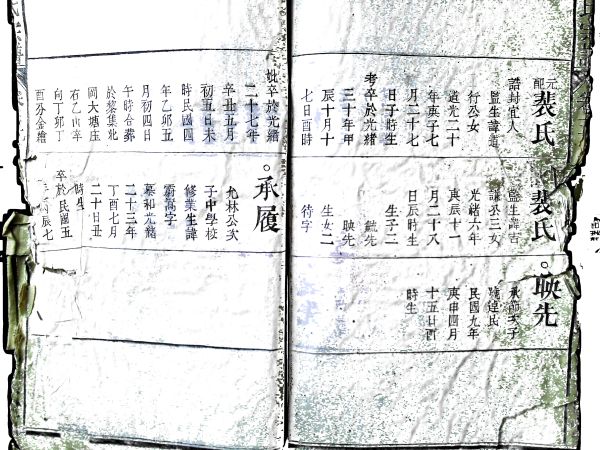 元配裴氏
誥封宜人
監生諱道
行公女
道光二十
年庚子七
月二十七
日子時生
考卒於光緒
三十年甲
辰十月十
七日酉時
妣卒於光緒
二十七年
辛丑五月
初五日未
時民國四
年乙卯五
月初四日
午時合葬
於黎集北
岡大塘庄
石乙山辛
向丁卯丁
酉分金繪
裴氏
監生諱吉
謙公三女
光緒六年
庚辰十一
月二十八
日辰時生
生子二
毓先
映先
生女二
待字
承履
允林公次
子中學校
修業生諱
字
慕和光緒
二十三年
丁酉七月
二十日丑
時生
卒於民國五
辰七
映先
承節次子
號達民
民國九年
庚申四月
十五日酉
時生